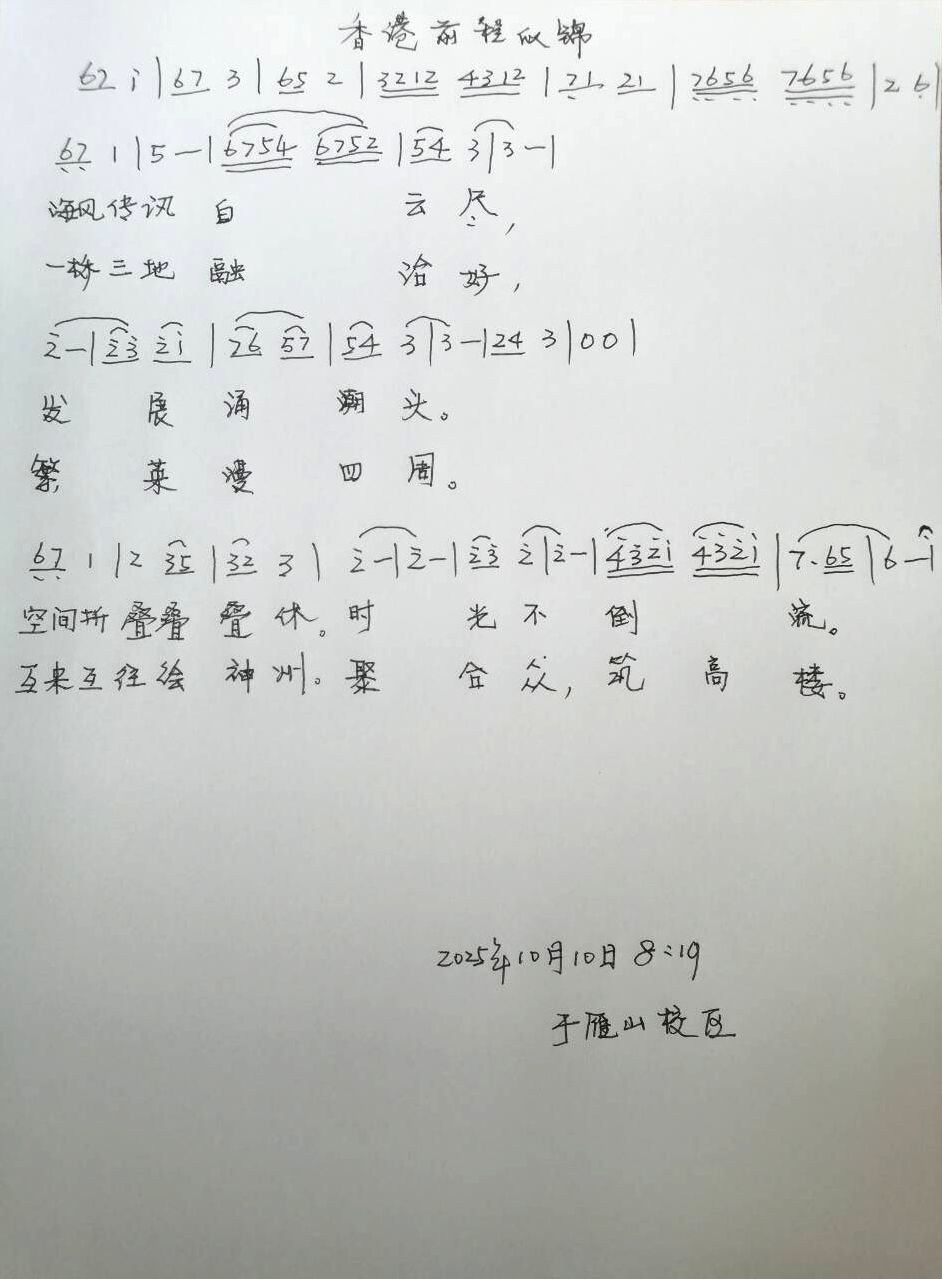 香港前程似锦
67 i | 67 3 | 65 2 | 3212 4312 | 71 21 | 7656 7656 | 2 6 |
67 1 | 5 — | 6754 6752 | 54 3 | 3 — |
海风传讯 白 云 尽,
一桥三地 融 洽 好,
2 — | 23 21 | 76 57 | 54 3 | 3 — | 24 3 | 0 0 |
发 展 涌 潮 头。
繁 荣 漫 四 周。
67 1 | 2 35 | 32 3 | 2 — | 2 — | 23 2 | 2 — | 4321 4321 | 7. 65 | 6 — |
空间折 叠叠 叠 休。时 光 不 倒 流。
互来互往绘 神 州。聚 合 众, 筑 高 楼。
2025年10月10日 8:19
于雁山校区